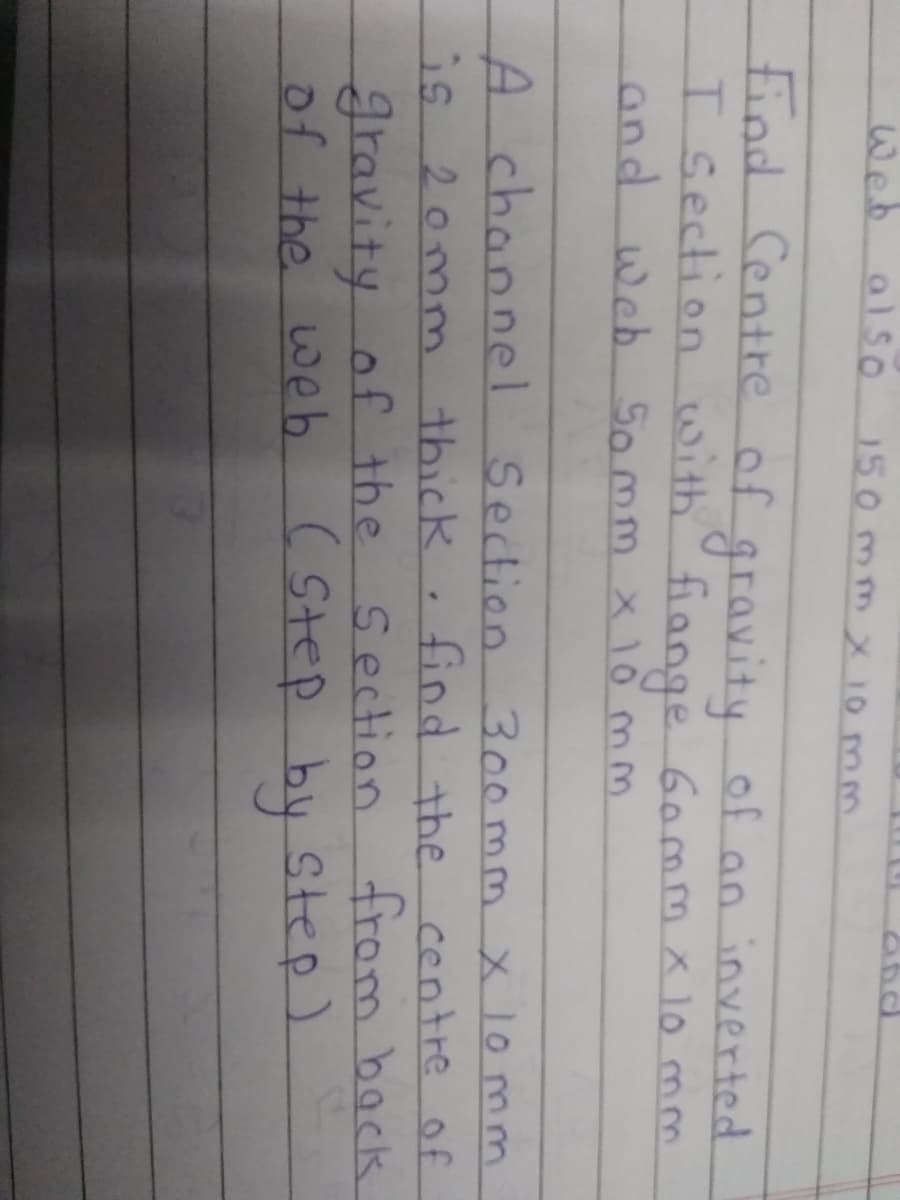 and
Web also 150 mm x 10 mm
Find Centre of gravity of an inverted
T section with flange 60mm x 10 mm
and web 50 mm x 10 mm
A channel Section 300 mm x 10 mm
is 20mm thick. find the centre of
gravity of the section from back
of the web (Step by step)